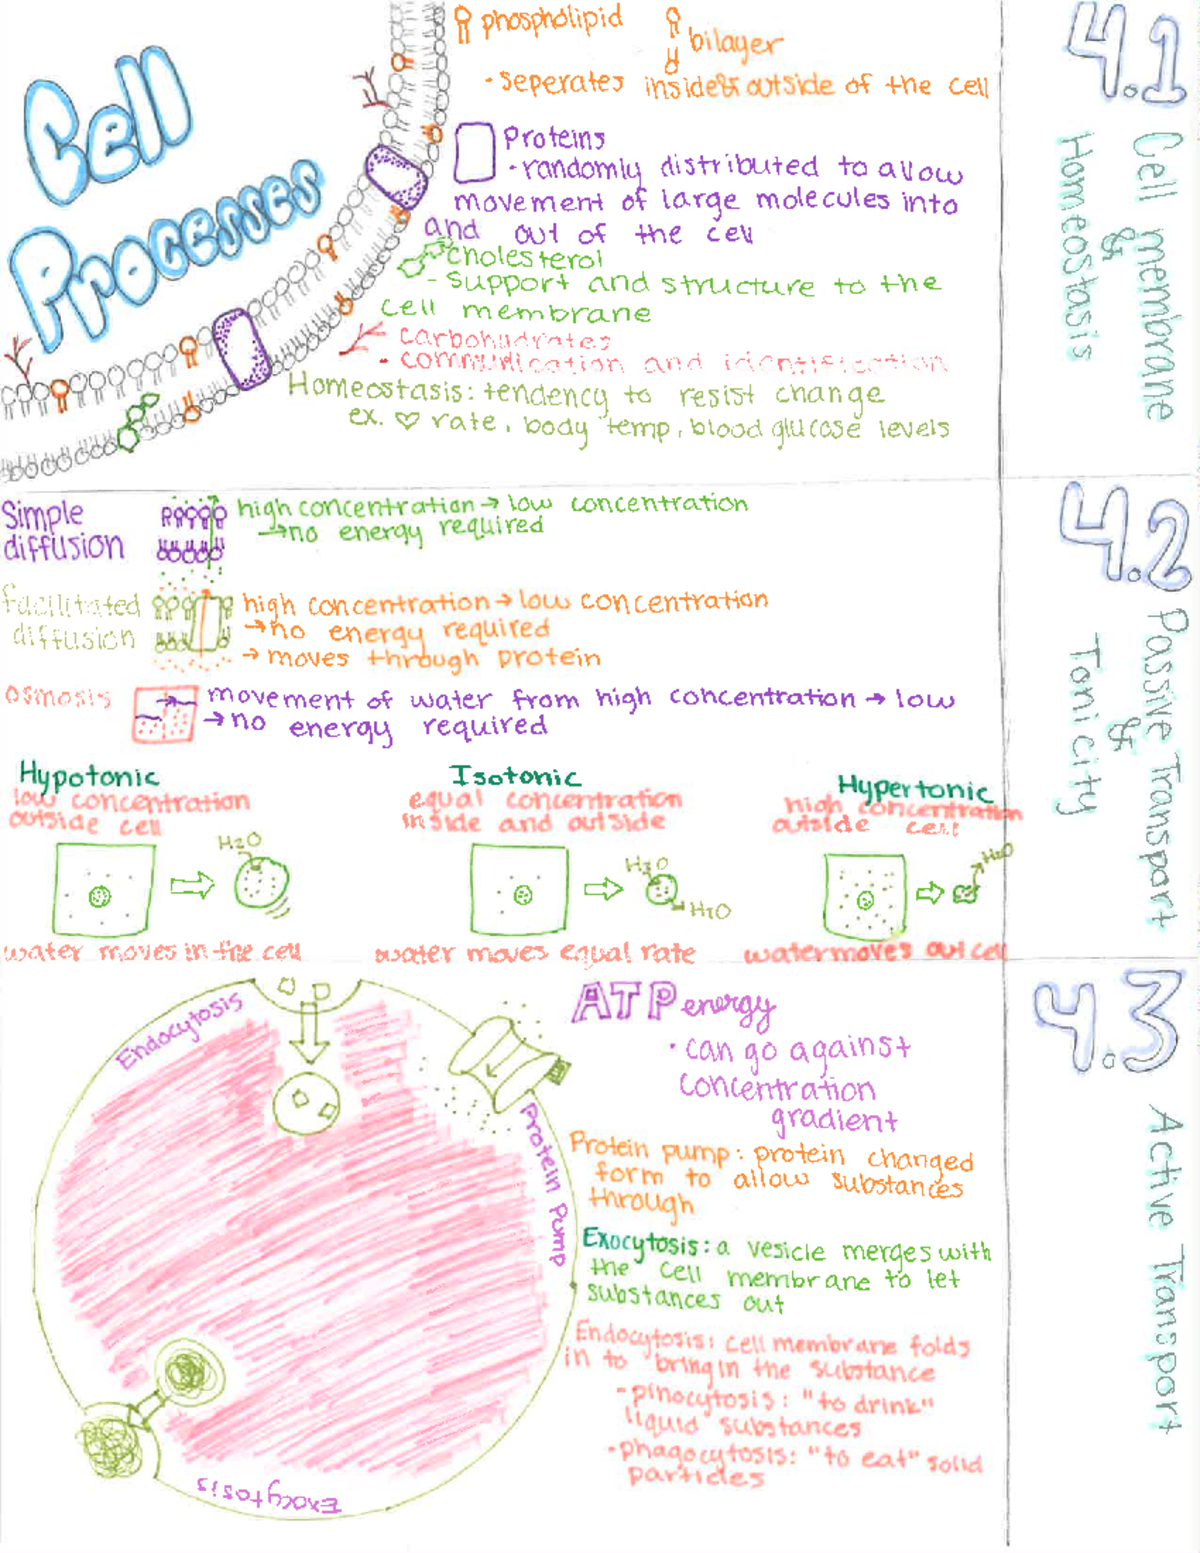 Cell
Processes
phospholipid
bilayer
· seperates inside & outside of the cell
Proteins
· randomly distributed to allow
movement of large molecules into
and out of the cell
cholesterol
- support and structure to the
cell membrane
carbohydrates
- communication and identification
Homeostasis: tendency to resist change
ex. ♡ rate, body temp, blood glucose levels
4.1
Cell membrane
&
Homeostasis
Simple
diffusion
high concentration → low concentration
→ no energy required
facilitated
diffusion
high concentration → low concentration
→ no energy required
→ moves through protein
osmosis
movement of water from high concentration → low
→ no energy required
Hypotonic
low concentration
outside cell
H2O
water moves in the cell
Isotonic
equal concentration
inside and outside
H2O
H2O
water moves equal rate
Hypertonic
high concentration
outside cell
H2O
water moves out cell
4.2
Passive Transport
&
Tonicity
Endocytosis
Protein Pump
Exocytosis
ATP energy
· can go against
concentration
gradient
Protein pump: protein changed
form to allow substances
through
Exocytosis: a vesicle merges with
the cell membrane to let
substances out
Endocytosis: cell membrane folds
in to bring in the substance
- pinocytosis: "to drink"
liquid substances
- phagocytosis: "to eat" solid
particles
4.3
Active Transport